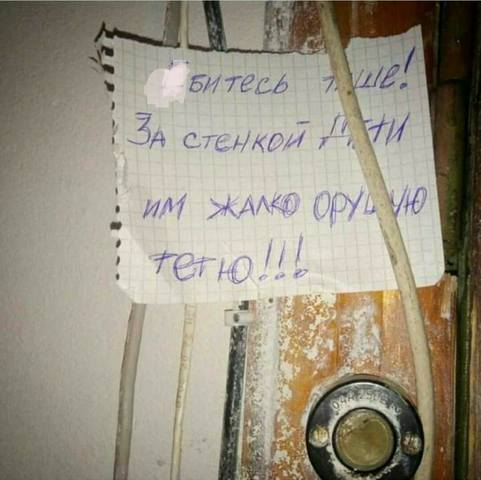 битесь тише!
За стенкой дети
им жалко орущую
тетю!!!